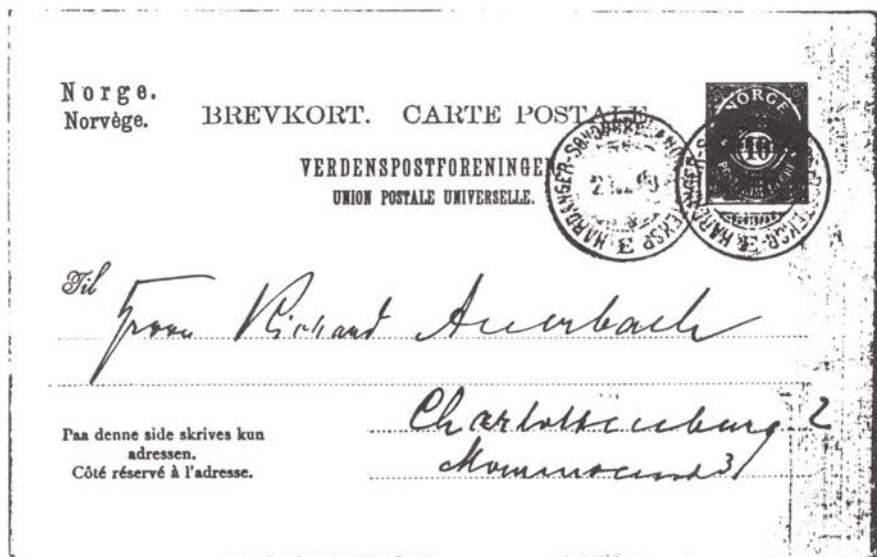 Norge.
Norvège.
BREVKORT. CARTE POSTALE
VERDENSPOSTFORENINGEN
UNION POSTALE UNIVERSELLE.
NORGE
10
HARDANGER-
POSTEKSP. E
Til
Herrn Richard Auerbach
Charlottenburg 2
Paa denne side skrives kun
adressen.
Côté réservé à l'adresse.